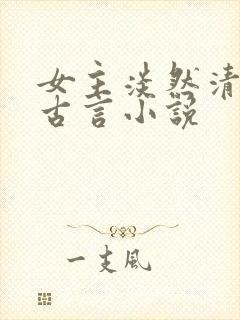 女主淡然清
古言小说
一支风